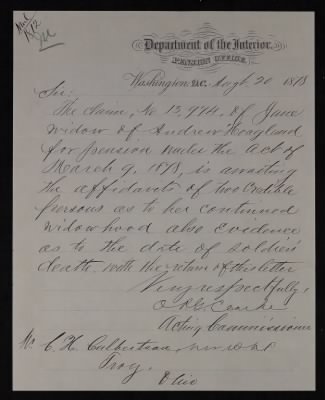 Department of the Interior,
PENSION OFFICE,
Washington, D.C. Augt. 20 1878
Sir:
The claim, No 13,994, of Jane
widow of Andrew Hoagland
for pension under the act of
March 9, 1878, is awaiting
the affidavits of two credible
persons as to her continued
widowhood also evidence
as to the date of soldiers
death. with the return of this letter
Very respectfully,
Clarke
Acting Commissioner
Mr C. H. Culbertson,
Troy,
Ohio